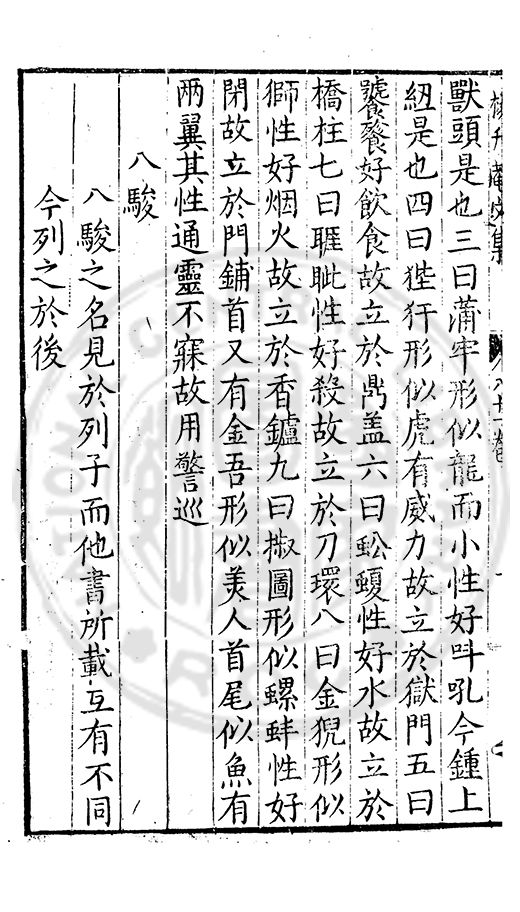 楊升菴文集
獸頭是也三曰蒲牢形似龍而小性好吽吼今鍾上
紐是也四曰狴犴形似虎有威力故立於獄門五曰
饕餮好飲食故立於鼎盖六曰蚣蝮性好水故立於
橋柱七曰睚眦性好殺故立於刀環八曰金猊形似
獅性好烟火故立於香鑪九曰椒圖形似螺蚌性好
閉故立於門鋪首又有金吾形似美人首尾似魚有
兩翼其性通靈不寐故用警巡
八駿
八駿之名見於列子而他書所載互有不同
今列之於後